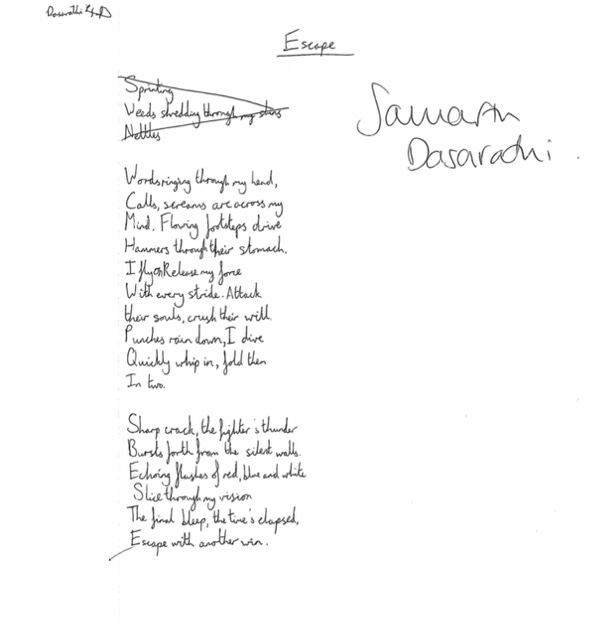 Dasarathi
Escape
Sprinting
Weeds shredding through my shins
Nettles
Samarth
Dasarathi.
Words ringing through my head,
Calls, screams arc across my
Mind. Flowing footsteps drive
Hammers through their stomach.
I fly on Release my force
With every stride. Attack
their souls, crush their will.
Punches rain down, I dive
Quickly whip in, fold them
In two.
Sharp crack, the fighter's thunder
Bursts forth from the silent walls.
Echoing flashes of red, blue and white
Slice through my vision
The final bleep, the time's elapsed,
Escape with another win.